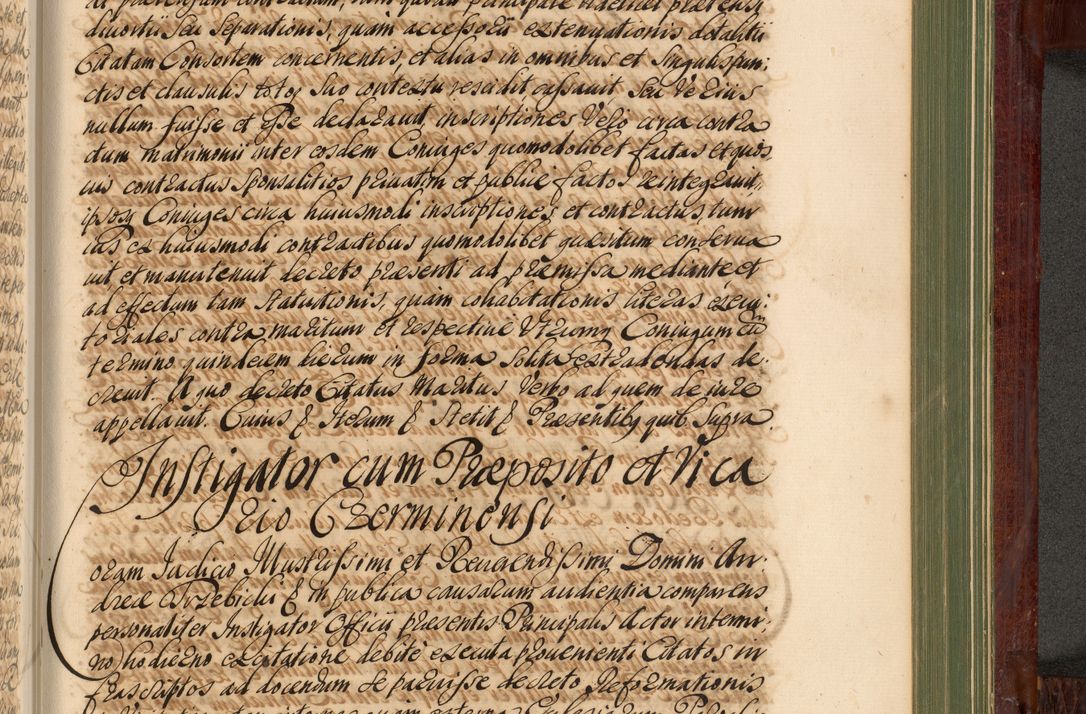 divortii seu separationis, quam accessorii extenuationis dotalitii
Citatam Consortem concernentis, et alias in omnibus et singulis pun:
ctis et clausulis totoq suo contextu rescidit cassavit seu verius
nullum fuisse et esse declaravit, inscriptiones vero circa contra
ctum matrimonii inter eosdem Coniuges quomodolibet factas et quos
vis contractus sponsalitios privatim et publice factos reintegravit,
ipsosq Coniuges circa huiusmodi inscriptiones et contractus, tum
ius ex huiusmodi contractibus quomodolibet quæsitum conserva
vit et manutenuit decreto præsenti ad præmissa mediante, et
ad effectum tam statuitionis, quam cohabitationis literas execu:
toriales contra maritum et respective utrumq Coniugum cum
termino quindecim dierum in forma solita extradendas de:
crevit. A quo decreto Citatus Maritus verbo ad quem de iure
appellavit. Cuius & Iterum & Stetit & Præsentibq quib supra.
Instigator cum Præposito et Vica
rio Czerminensi
oram Iudicio Illustrissimi et Reverendissimi Domini An:
dreæ Trzebicki & in publica causarum audientia comparens
personaliter Instigator Officii præsentis Principalis Actor in termi:
no hodierno ex citatione debite executa provenienti Citatos in
frascriptos ad docendum de paruisse decreto Reformationis